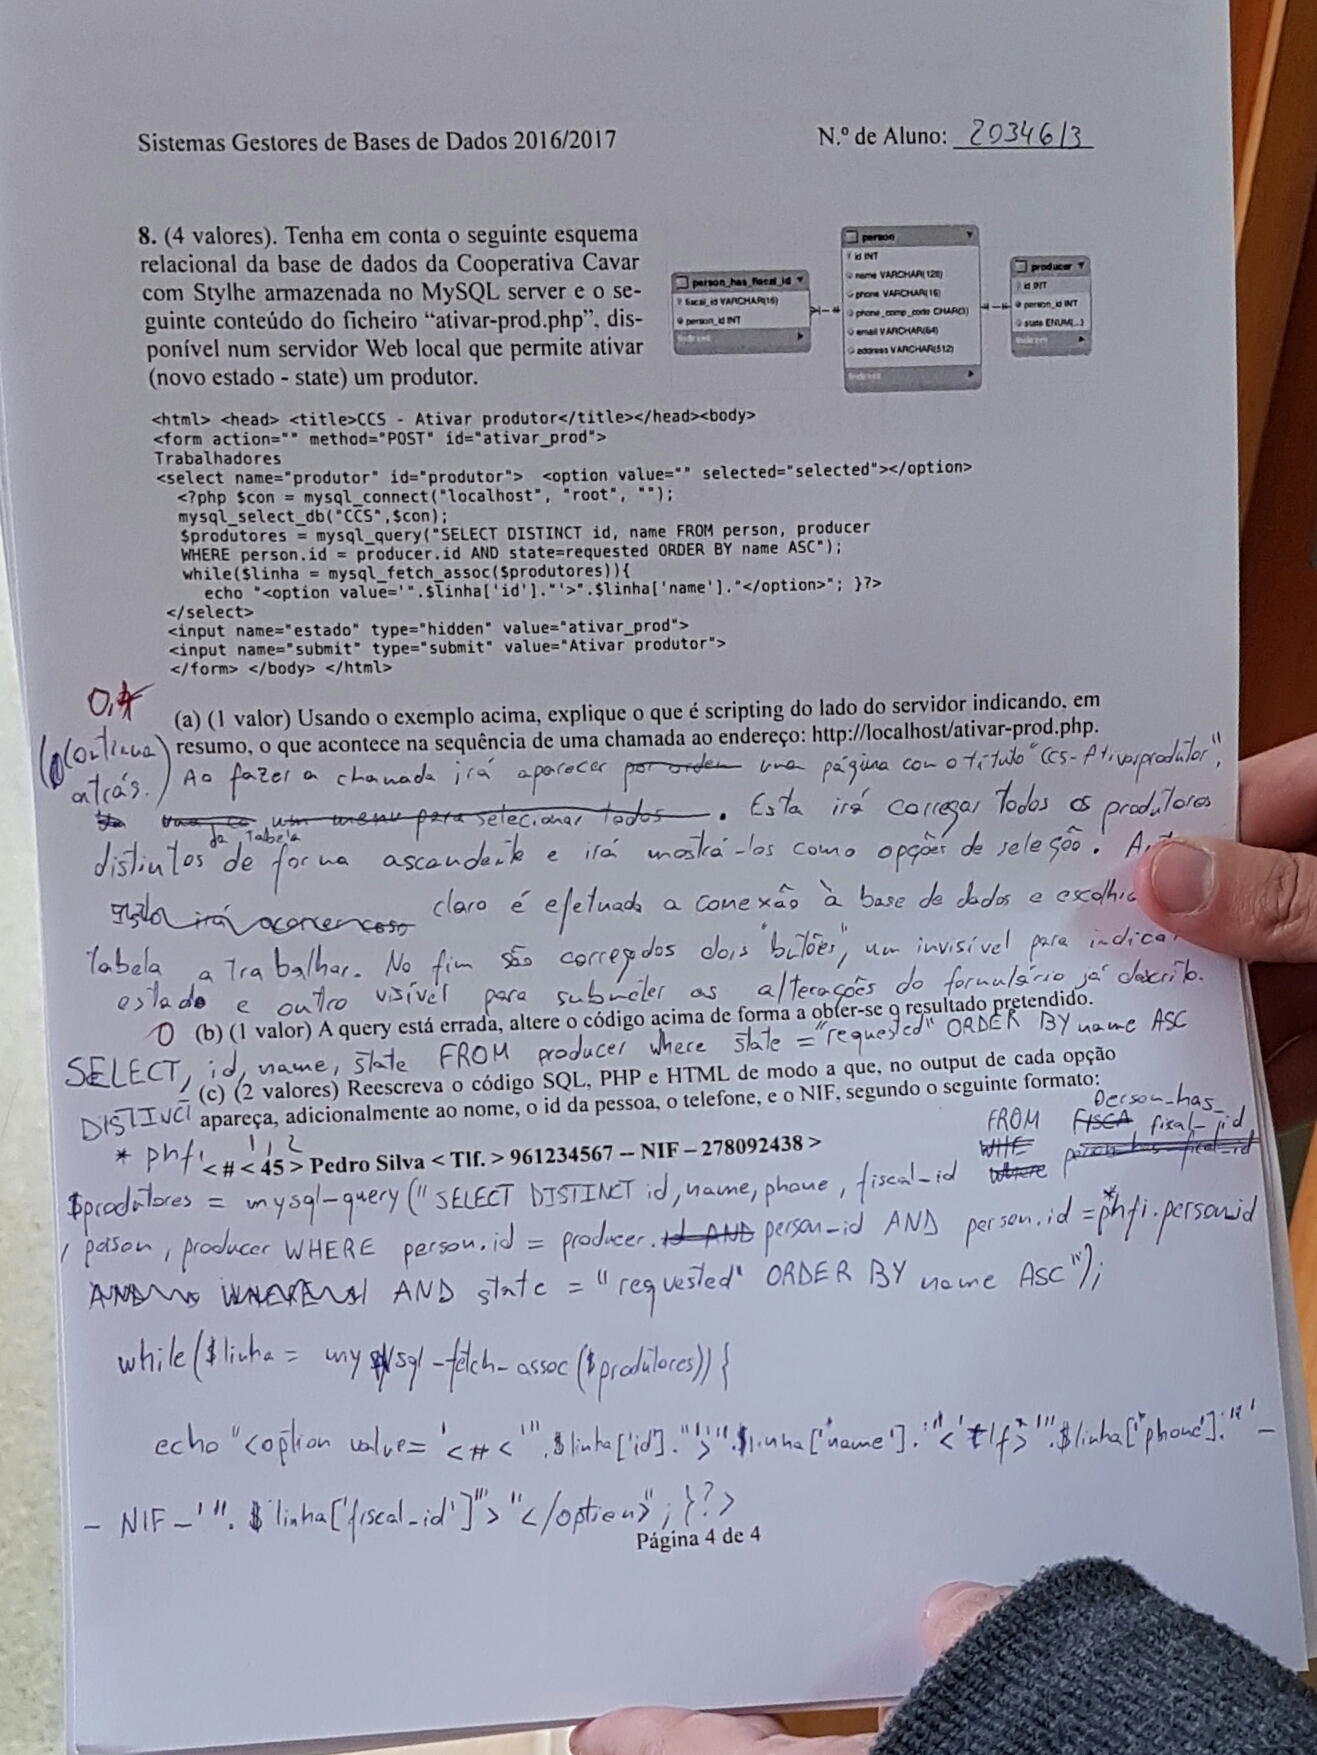 Sistemas Gestores de Bases de Dados 2016/2017
N.º de Aluno: 2034613
8. (4 valores). Tenha em conta o seguinte esquema
relacional da base de dados da Cooperativa Cavar
com Stylhe armazenada no MySQL server e o se-
guinte conteúdo do ficheiro “ativar-prod.php”, dis-
ponível num servidor Web local que permite ativar
(novo estado - state) um produtor.
person_has_fiscal_id
fiscal_id VARCHAR(16)
person_id INT
Indexes
person
id INT
name VARCHAR(128)
phone VARCHAR(16)
phone_comp_code CHAR(3)
email VARCHAR(64)
address VARCHAR(512)
Indexes
producer
id INT
person_id INT
state ENUM(...)
Indexes
<html> <head> <title>CCS - Ativar produtor</title></head><body>
<form action="" method="POST" id="ativar_prod">
Trabalhadores
<select name="produtor" id="produtor"> <option value="" selected="selected"></option>
<?php $con = mysql_connect("localhost", "root", "");
mysql_select_db("CCS",$con);
$produtores = mysql_query("SELECT DISTINCT id, name FROM person, producer
WHERE person.id = producer.id AND state=requested ORDER BY name ASC");
while($linha = mysql_fetch_assoc($produtores)){
echo "<option value='".$linha['id']."'>".$linha['name']."</option>"; }?>
</select>
<input name="estado" type="hidden" value="ativar_prod">
<input name="submit" type="submit" value="Ativar produtor">
</form> </body> </html>
(a) (1 valor) Usando o exemplo acima, explique o que é scripting do lado do servidor indicando, em
resumo, o que acontece na sequência de uma chamada ao endereço: http://localhost/ativar-prod.php.
(Continua
atrás.)
Ao fazer a chamada irá aparecer por orden uma página com o título "CCS-Ativar produtor",
um menu para selecionar todos. Esta irá carregar todos os produtores
da Tabela
distintos de forma ascendente e irá mostrá-los como opções de seleção.
claro é efetuada a conexão à base de dados e
tabela a trabalhar. No fim são carregados dois "butões", um invisível para indica
estado e outro visível para submeter as alterações do formulário já descrito.
0 (b) (1 valor) A query está errada, altere o código acima de forma a obter-se o resultado pretendido.
SELECT, id, name, state FROM producer where state = "requested" ORDER BY name ASC
DISTINCT
(c) (2 valores) Reescreva o código SQL, PHP e HTML de modo a que, no output de cada opção
apareça, adicionalmente ao nome, o id da pessoa, o telefone, e o NIF, segundo o seguinte formato:
1,2
* phfi
< # < 45 > Pedro Silva < Tlf. > 961234567 -- NIF – 278092438 >
person_has_
FROM FISCA fiscal_id
WHE
where
$produtores = mysql-query("SELECT DISTINCT id, name, phone, fiscal_id
, person, producer WHERE person.id = producer.id AND person_id AND person.id = *phfi.person_id
AND state = "requested" ORDER BY name ASC");
while($linha = mysql-fetch-assoc($produtores)){
echo "<option value='<#<'".$linha['id']."'>'".$linha['name']."'<'tlf>'".$linha['phone']."'-
- NIF -'". $linha['fiscal_id']"'>"</option>";}?>
Página 4 de 4